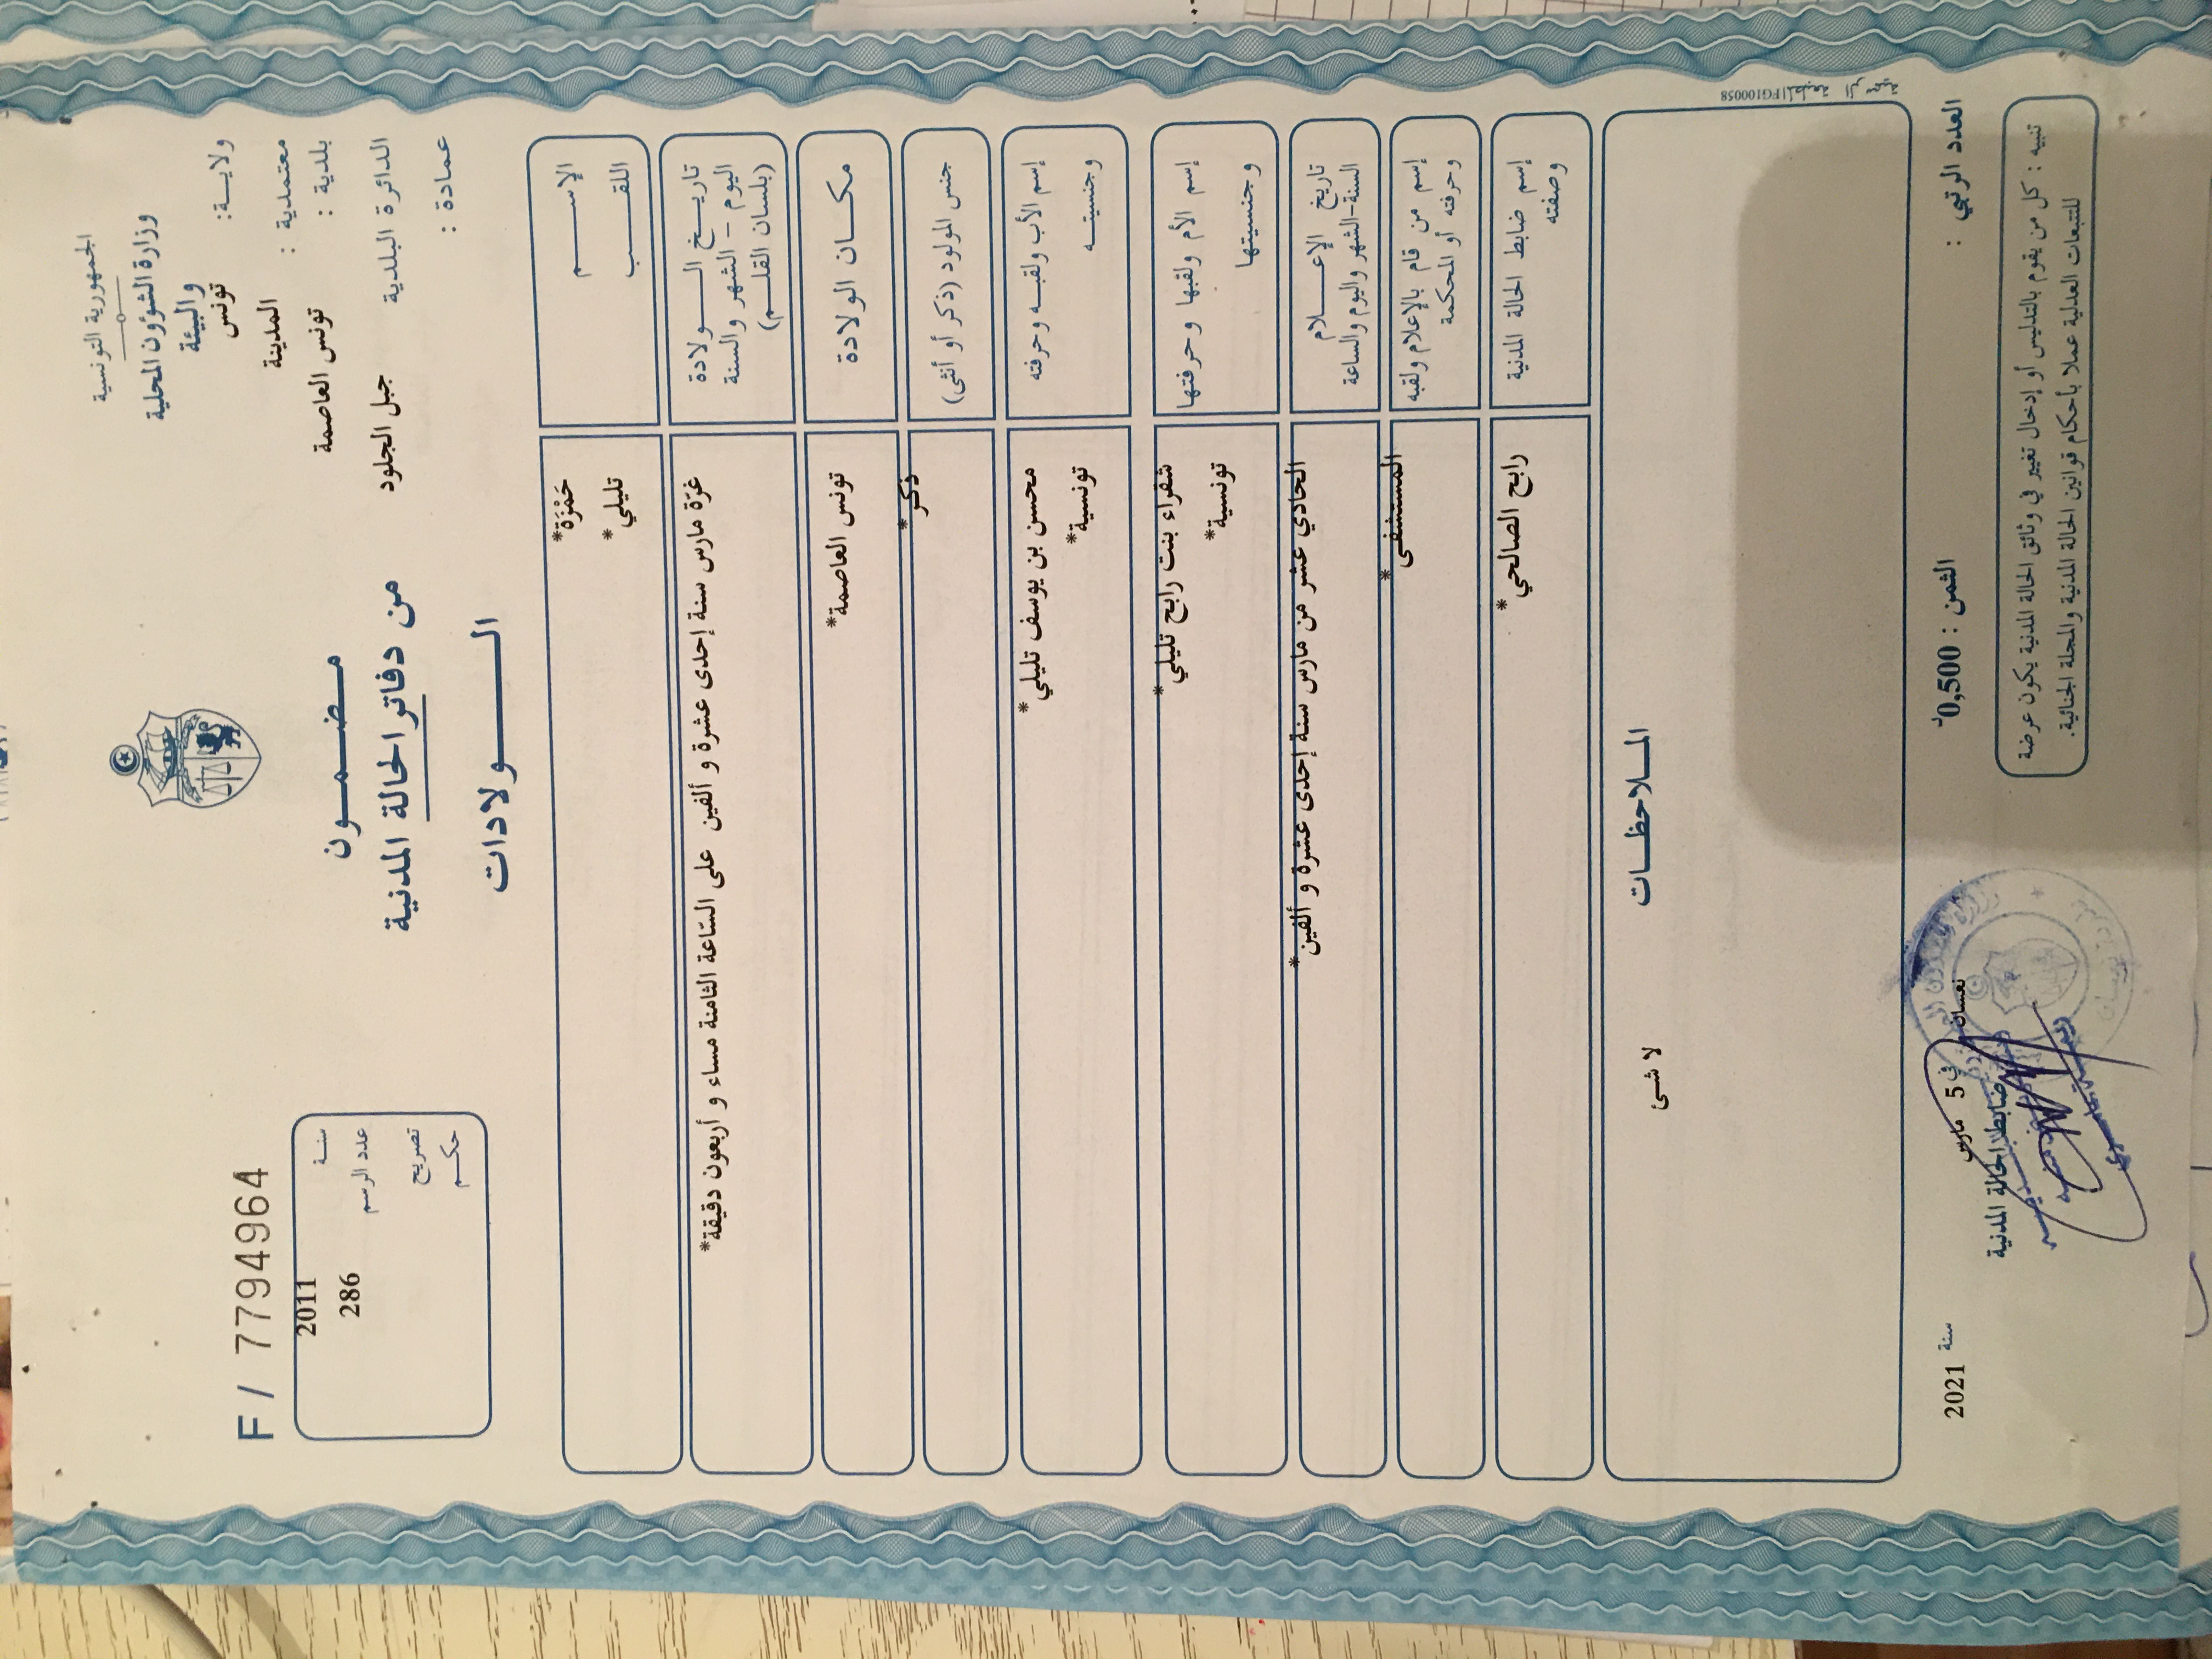 الجمهورية التونسية
وزارة الشؤون المحلية
والبيئة
ولاية: تونس
معتمدية : المدينة
بلدية : تونس العاصمة
الدائرة البلدية جبل الجلود
عمادة :
مضمون
من دفاتر الحالة المدنية
الولادات
F / 7794964
سنة 2011
عدد الرسم 286
تصريح
حكم
الإسم حَمْزَة*
اللقب تليلي*
تاريخ الولادة غرّة مارس سنة إحدى عشرة و ألفين على السّاعة الثامنة مساء و أربعون دقيقة*
اليوم - الشهر والسنة
(بلسان القلم)
مكان الولادة تونس العاصمة*
جنس المولود (ذكر أو أنثى) ذكر*
إسم الأب ولقبه وحرفته محسن بن يوسف تليلي*
وجنسيته تونسية*
إسم الأم ولقبها وحرفتها شقراء بنت رابح تليلي*
وجنسيتها تونسية*
تاريخ الإعلام الحادي عشر من مارس سنة إحدى عشرة و ألفين*
السنة-الشهر واليوم والساعة
إسم من قام بالإعلام ولقبه المستشفى*
وحرفته أو المحكمة
إسم ضابط الحالة المدنية رابح الصالحي*
وصفته
الملاحظات
لا شئ
المطبعة الرسمية FG100058
العدد الرتبي :
الثمن : 0,500د
نعسان في 5 مارس سنة 2021
ضابط الحالة المدنية
تنبيه : كل من يقوم بالتدليس أو إدخال تغيير في وثائق الحالة المدنية يكون عرضة
للتتبعات العدلية عملا بأحكام قوانين الحالة المدنية والمجلة الجنائية.